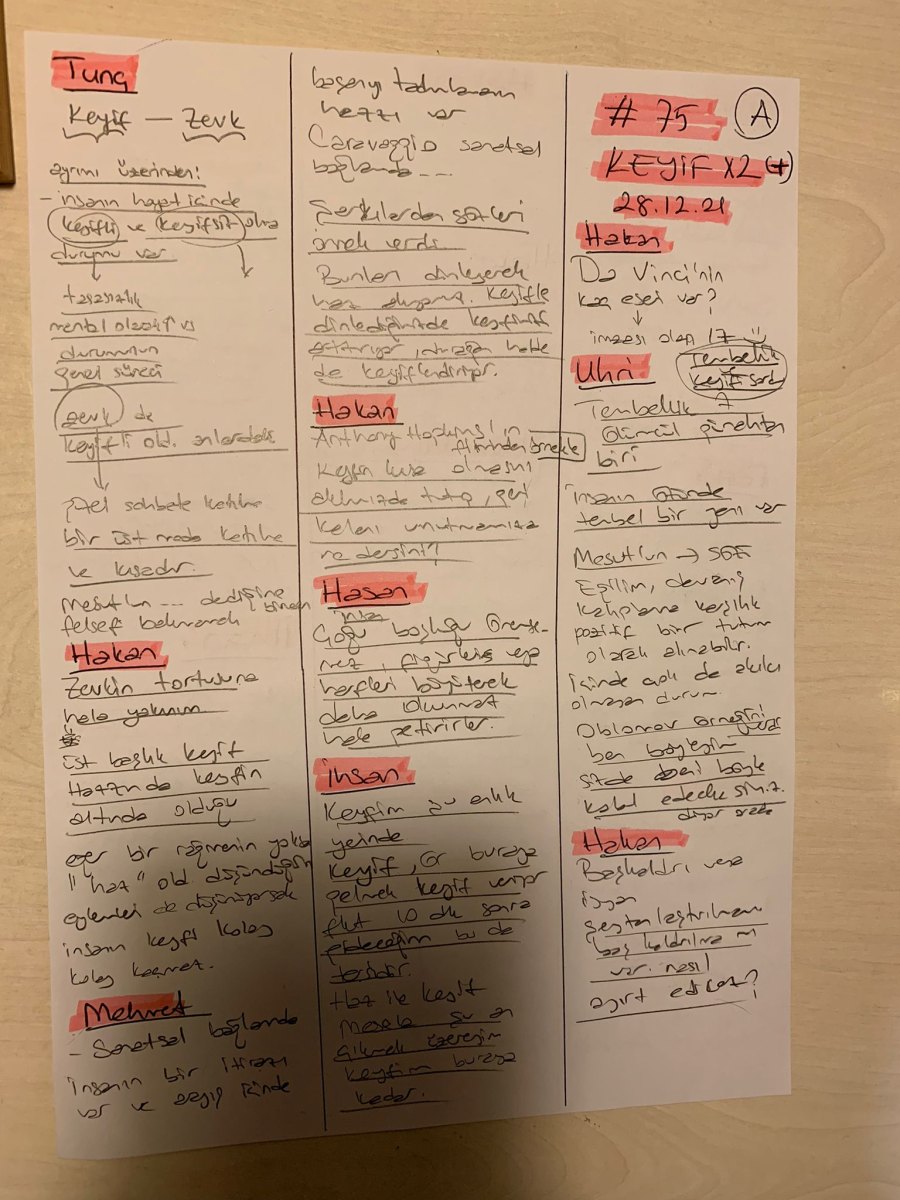 Tunç
Keyif — Zevk
ayrımı üzerinden!
- insanın hayat içinde
keyifli ve keyifsiz olma
durumu var
mental olarak
durumunun
genel süreci
zevk de
keyifli old. anlardaki
güzel sohbete katılma
bir üst moda katılma
ve kısadır.
Mesut'un ... dediğine binaen
felsefi bakmamak
Hakan
Zevkin tortusuna
hala yakınım
üst başlık keyif
Hazzında keyfin
altında olduğu
eğer bir rağmenin yoksa
"haz" old. düşündüğün
eylemleri de düşünüyorsak
insanın keyfi kolay
kolay kaçmaz.
Mehmet
- Sanatsal bağlamda
insanın bir itirazı
var ve arayış içinde
başarıyı tadmlamanın
hazzı var
Caravaggio sanatsal
bağlamda ....
Şarkılardan sözleri
örnek verdi.
Bunları dinleyerek
haz alıyoruz. Keyifle
dinlediğinizde keyfinizi
arttırıyor, durağan halde
de keyiflendiriyor.
Hakan
Anthony Hopkins'in
filminden örnekle
Keyfin kısa olmasını
aklımızda tutup, geri
kalanı unutmamıza
ne dersiniz?
Hasan
Çoğu insan başlığı önemse-
mez, figürleri veya
harfleri büyüterek
daha okunmaz
hale getirirler.
İhsan
Keyfim şu anlık
yerinde
Keyif, er buraya
gelmek keyif veriyor
fkt 10 dk sonra
gideceğim bu da
tersidir.
Haz ile keyif
Mesela şu an
çıkmak üzereyim
keyfim buraya
kadar.
# 75 A
KEYİF X2 (+)
28.12.21
Hakan
Da Vinci'nin
kaç eseri var?
imzası olan 17
Tembellik
keyif
Uhri
Tembellik 7
ölümcül günahtan
biri
insanın özünde
tembel bir yanı var
Mesut'un →
Eğilim, davranış
kalıplarına karşılık
pozitif bir tutum
olarak alınabilir.
içinde çok da akılcı
olmayan durum.
Oblomov örneğini
ben böyleyim
sizde beni böyle
kabul edeceksiniz.
diyor
Hakan
Başkaldırı veya
isyan
şeytanlaştırılmamış
baş kaldırılma mı
var. nasıl
ayırt edilcez?